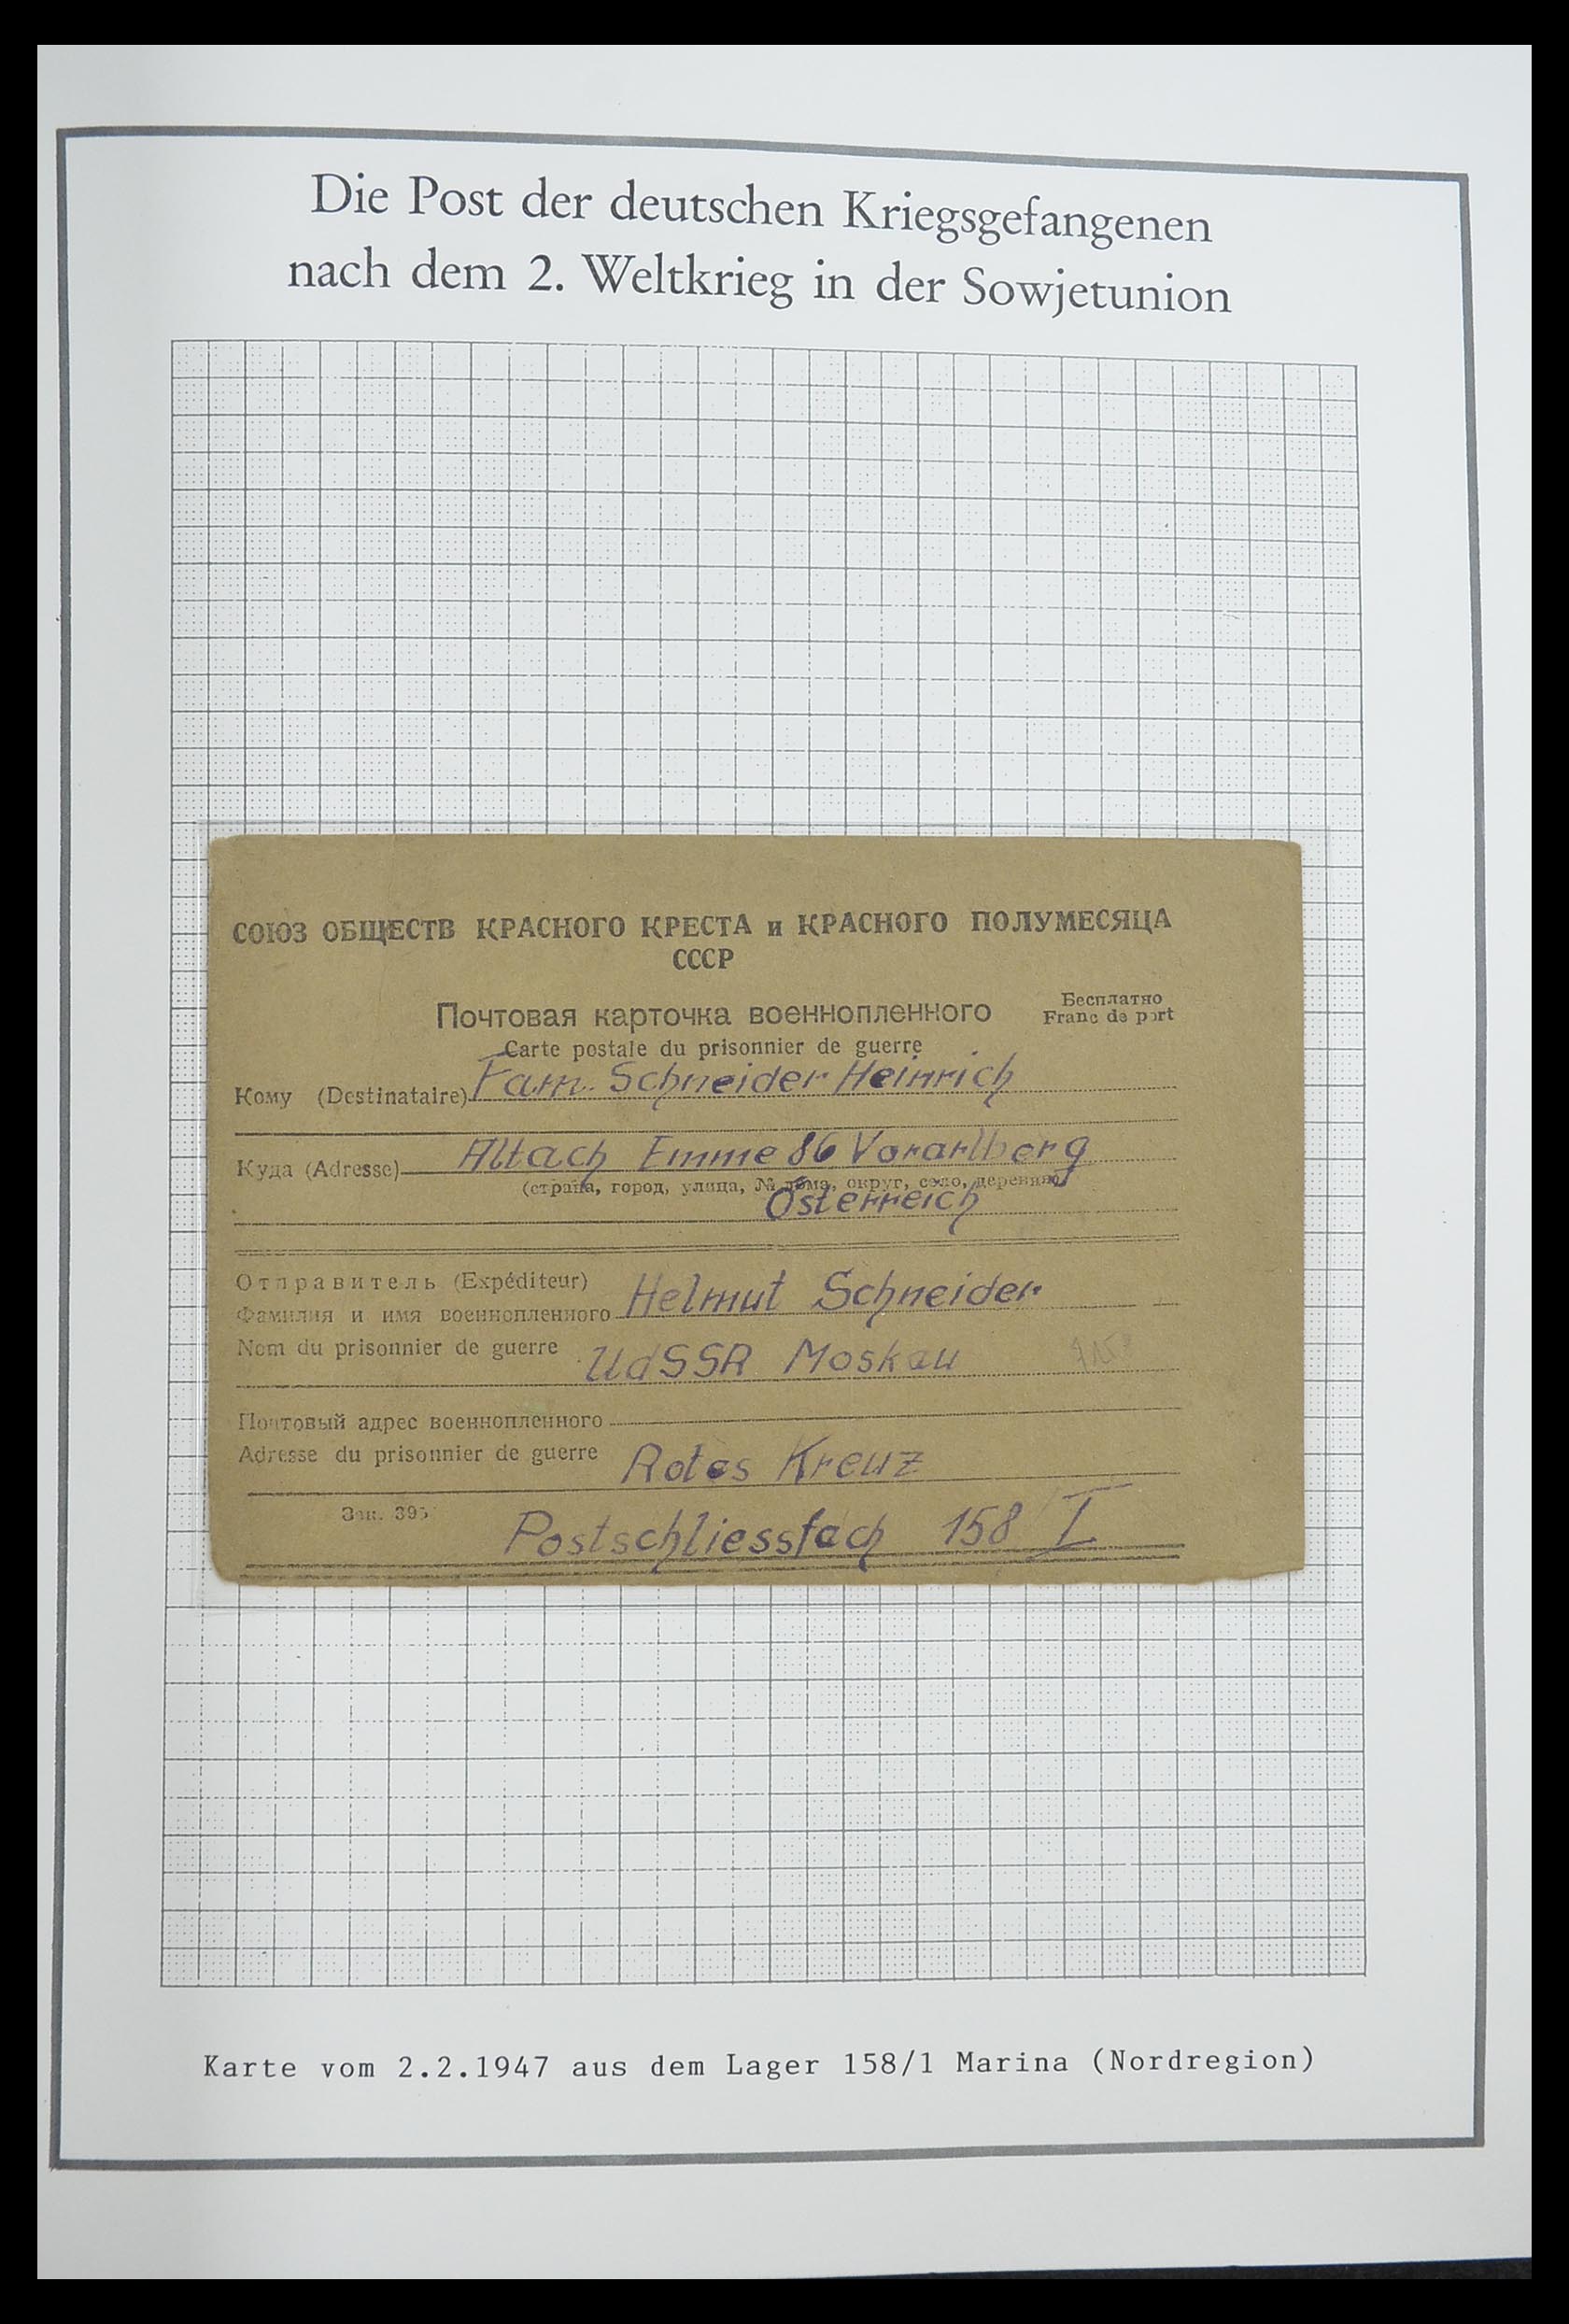 Die Post der deutschen Kriegsgefangenen
nach dem 2. Weltkrieg in der Sowjetunion
СОЮЗ ОБЩЕСТВ КРАСНОГО КРЕСТА и КРАСНОГО ПОЛУМЕСЯЦА
СССР
Почтовая карточка военнопленного
Бесплатно
Franc de port
Carte postale du prisonnier de guerre
Кому (Destinataire) Fam. Schneider Heinrich
Куда (Adresse) Altach Emme 86 Vorarlberg
(страна, город, улица, № дома, округ, село, деревня)
Österreich
Отправитель (Expéditeur)
Фамилия и имя военнопленного Helmut Schneider
Nom du prisonnier de guerre UdSSR Moskau
Почтовый адрес военнопленного
Adresse du prisonnier de guerre Rotes Kreuz
Зак. 395
Postschliessfach 158 I
Karte vom 2.2.1947 aus dem Lager 158/1 Marina (Nordregion)